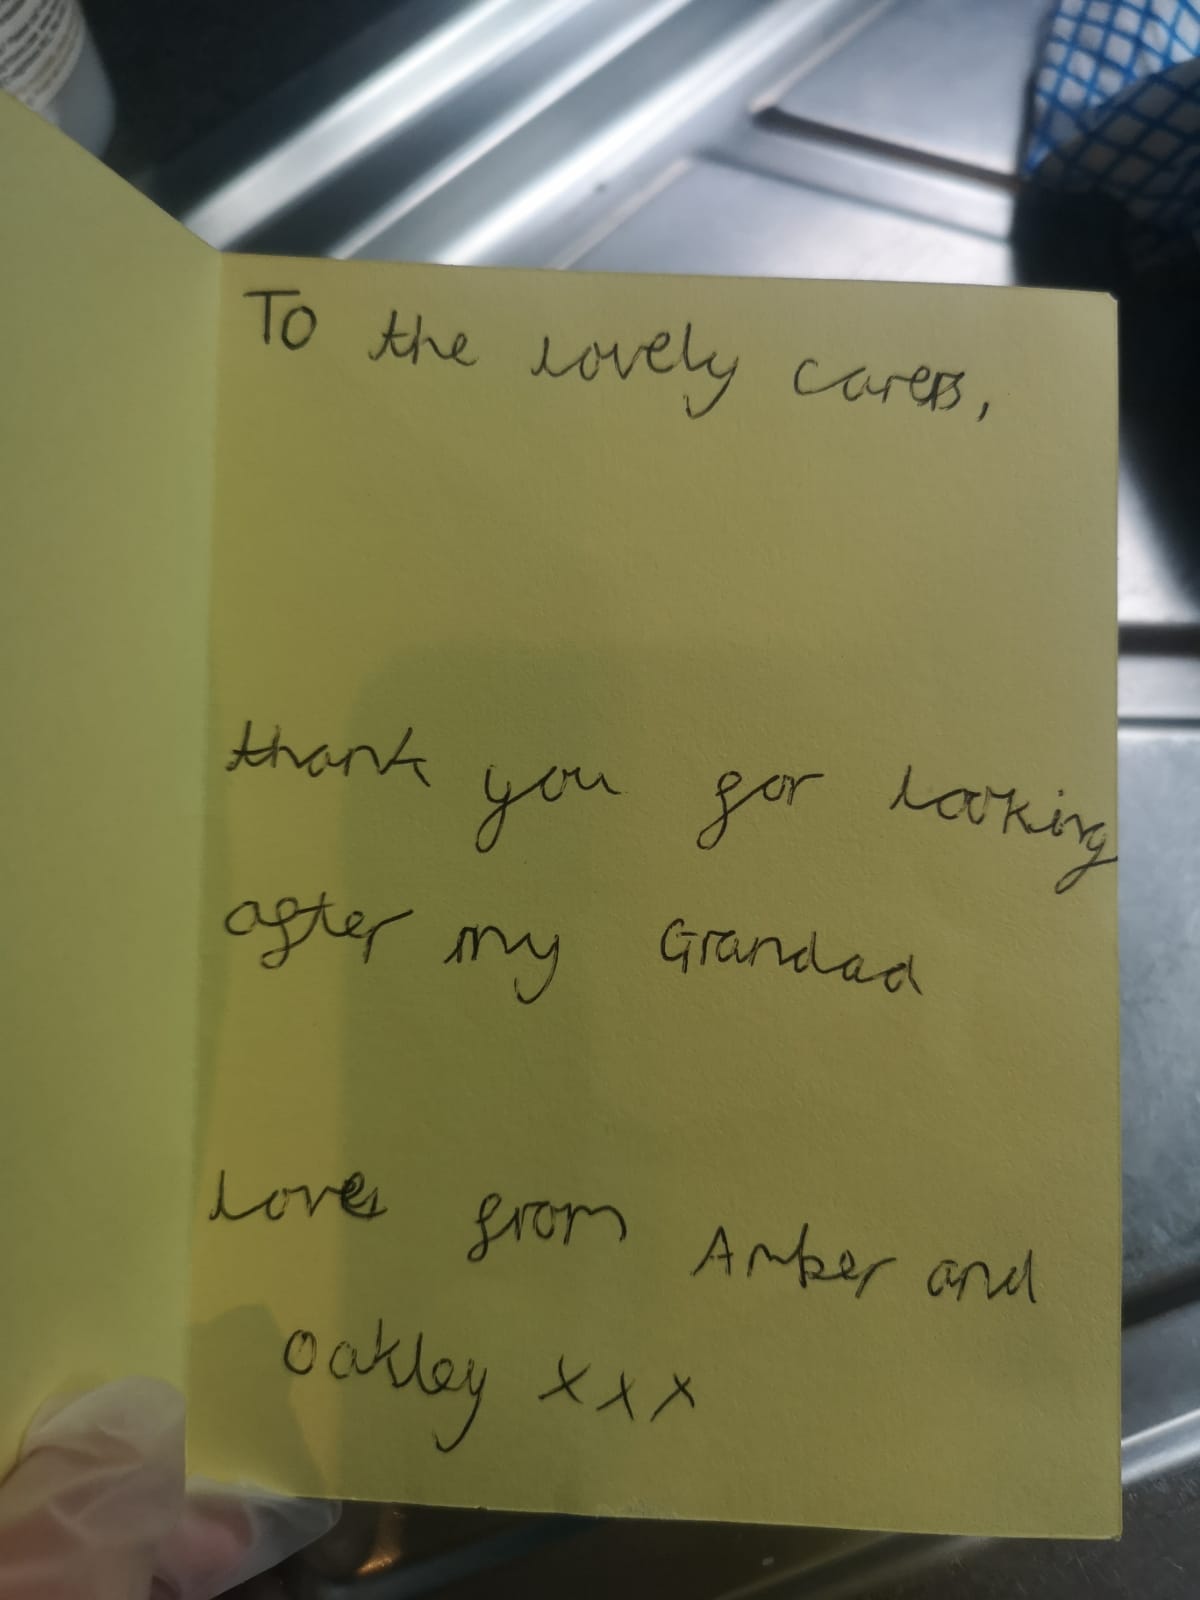 To the lovely carers,
thank you for looking
after my Grandad
love from Amber and
Oakley xxx